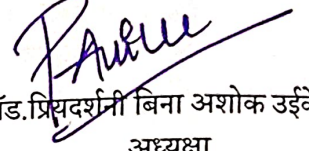 डॉ.प्रियदर्शनी बिना अशोक उईके
अध्यक्षा